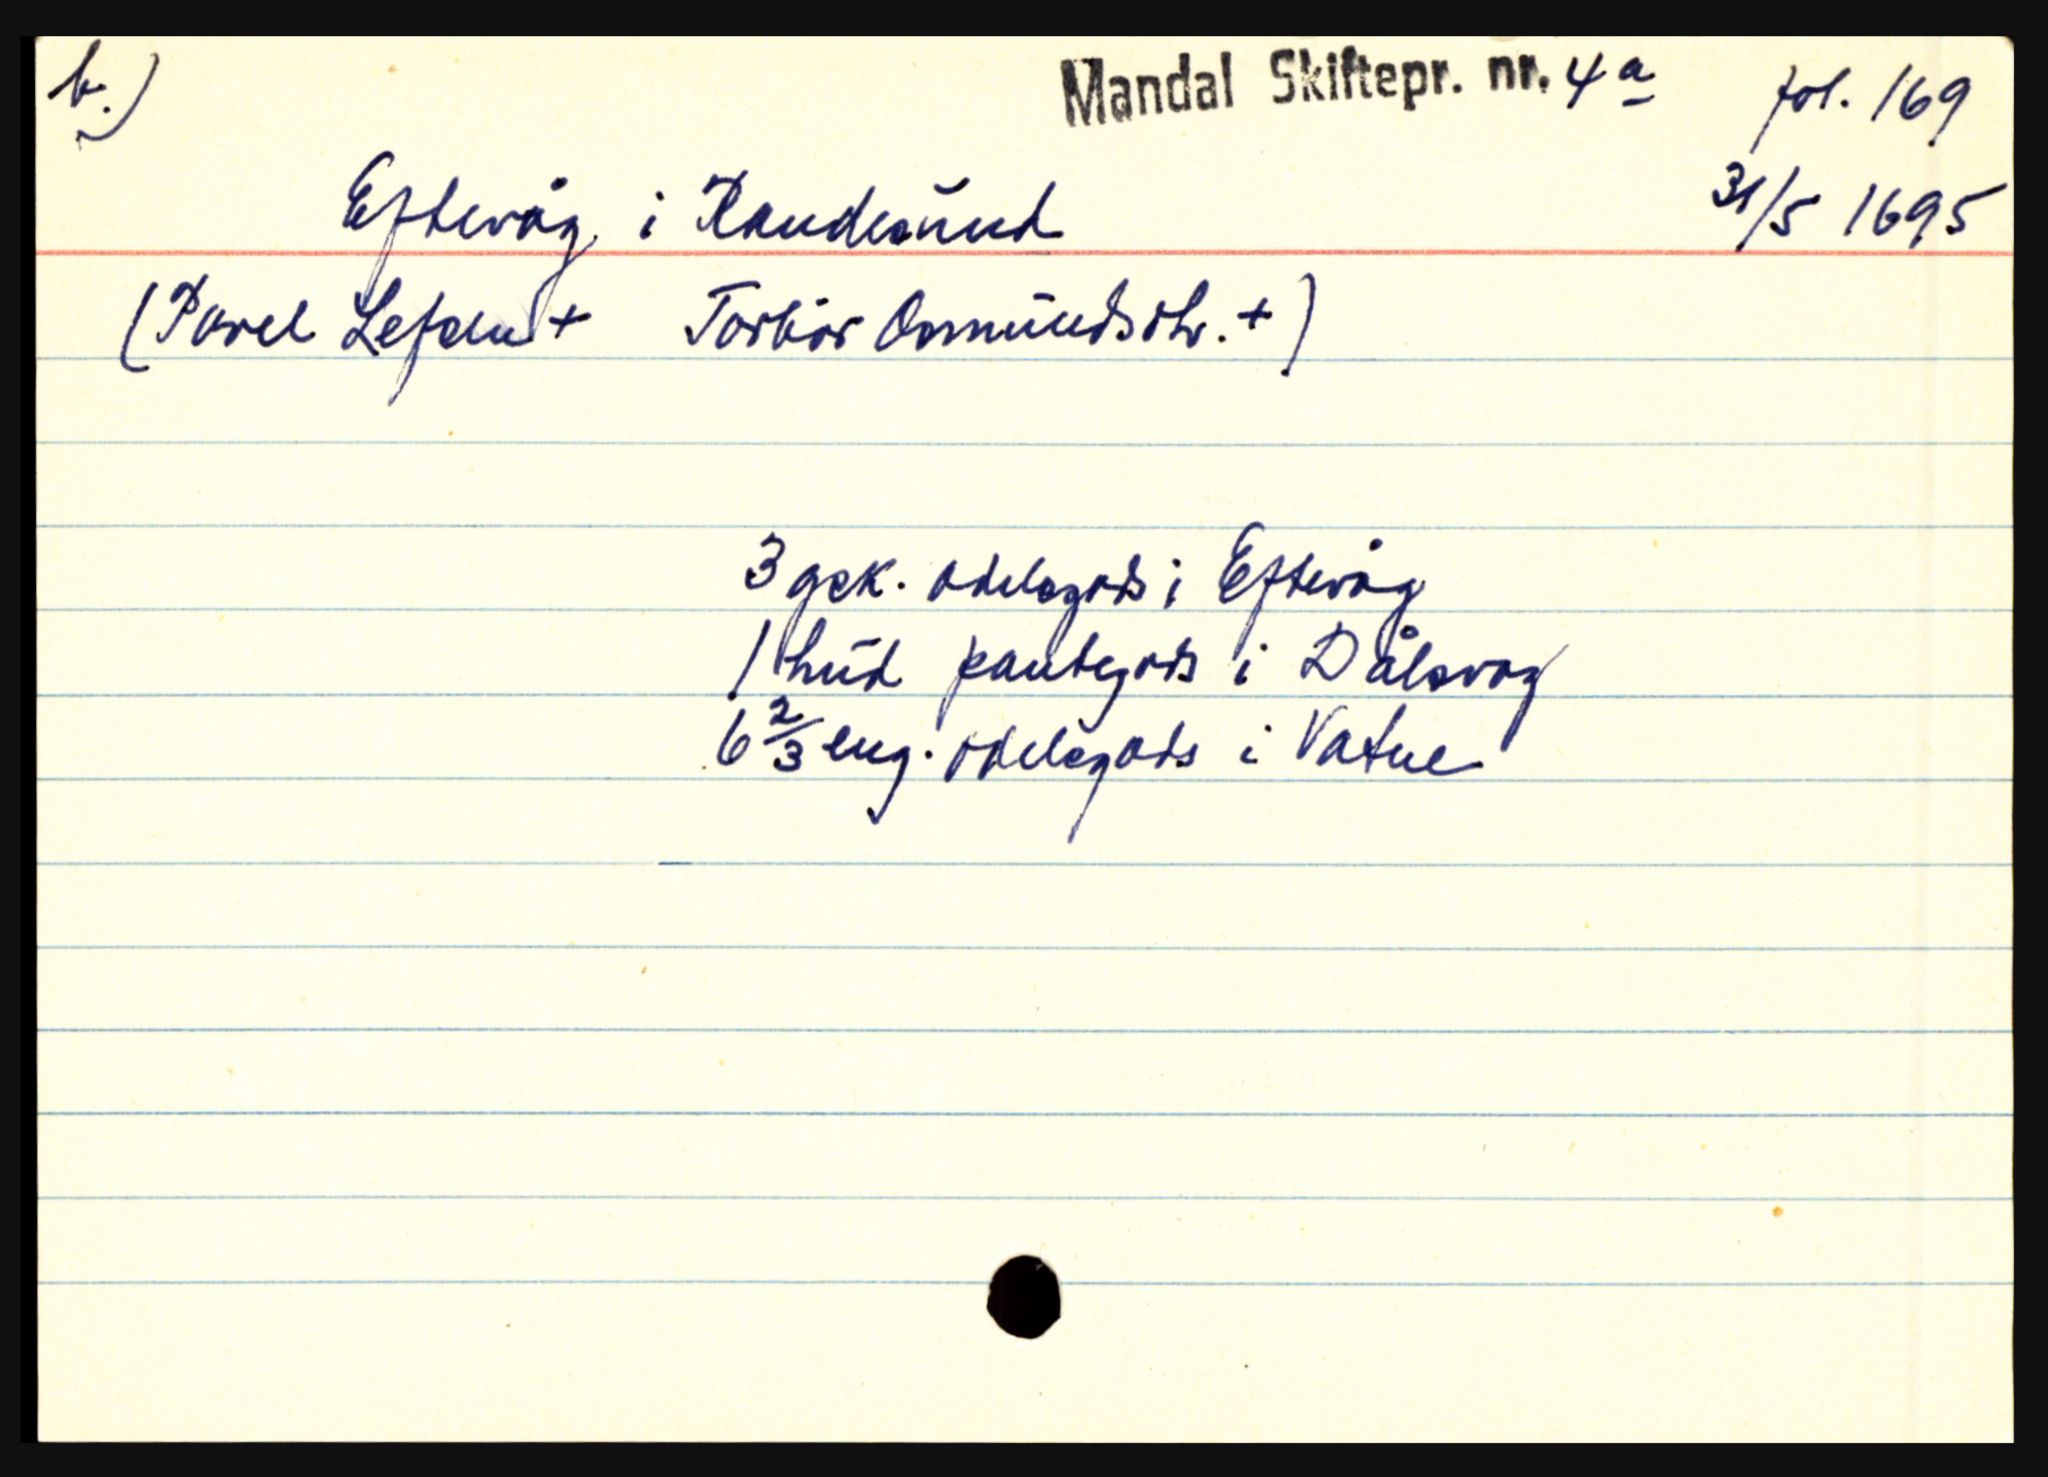 b.) Mandal Skiftepr. nr. 4a fol. 169
Eftevåg i Randesund 31/5 1695
(Pavel Lefdn + Torbör Osmundsdtr. +)
3 gsk. odelsgods i Eftevåg
1 hud pantegods i Dålsvåg
6 2/3 eng. odelsgods i Vatne